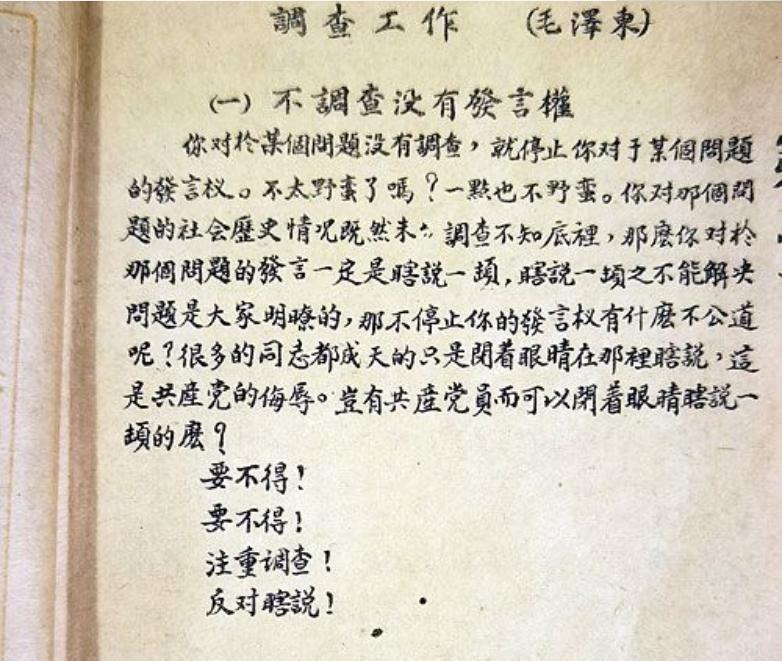 調查工作 (毛澤東)
(一) 不調查没有發言權
你对於某個問題没有調查，就停止你对于某個問題
的發言权。不太野蛮了嗎？一點也不野蛮。你对那個問
題的社会歷史情况既然未 調查不知底裡，那麽你对於
那個問題的發言一定是瞎説一頓，瞎説一頓之不能解决
問題是大家明瞭的，那不停止你的發言权有什麽不公道
呢？很多的同志都成天的只是閉着眼睛在那裡瞎説，這
是共産党的侮辱。豈有共産党員而可以閉着眼睛瞎説一
頓的麽？
要不得！
要不得！
注重调查！
反对瞎説！